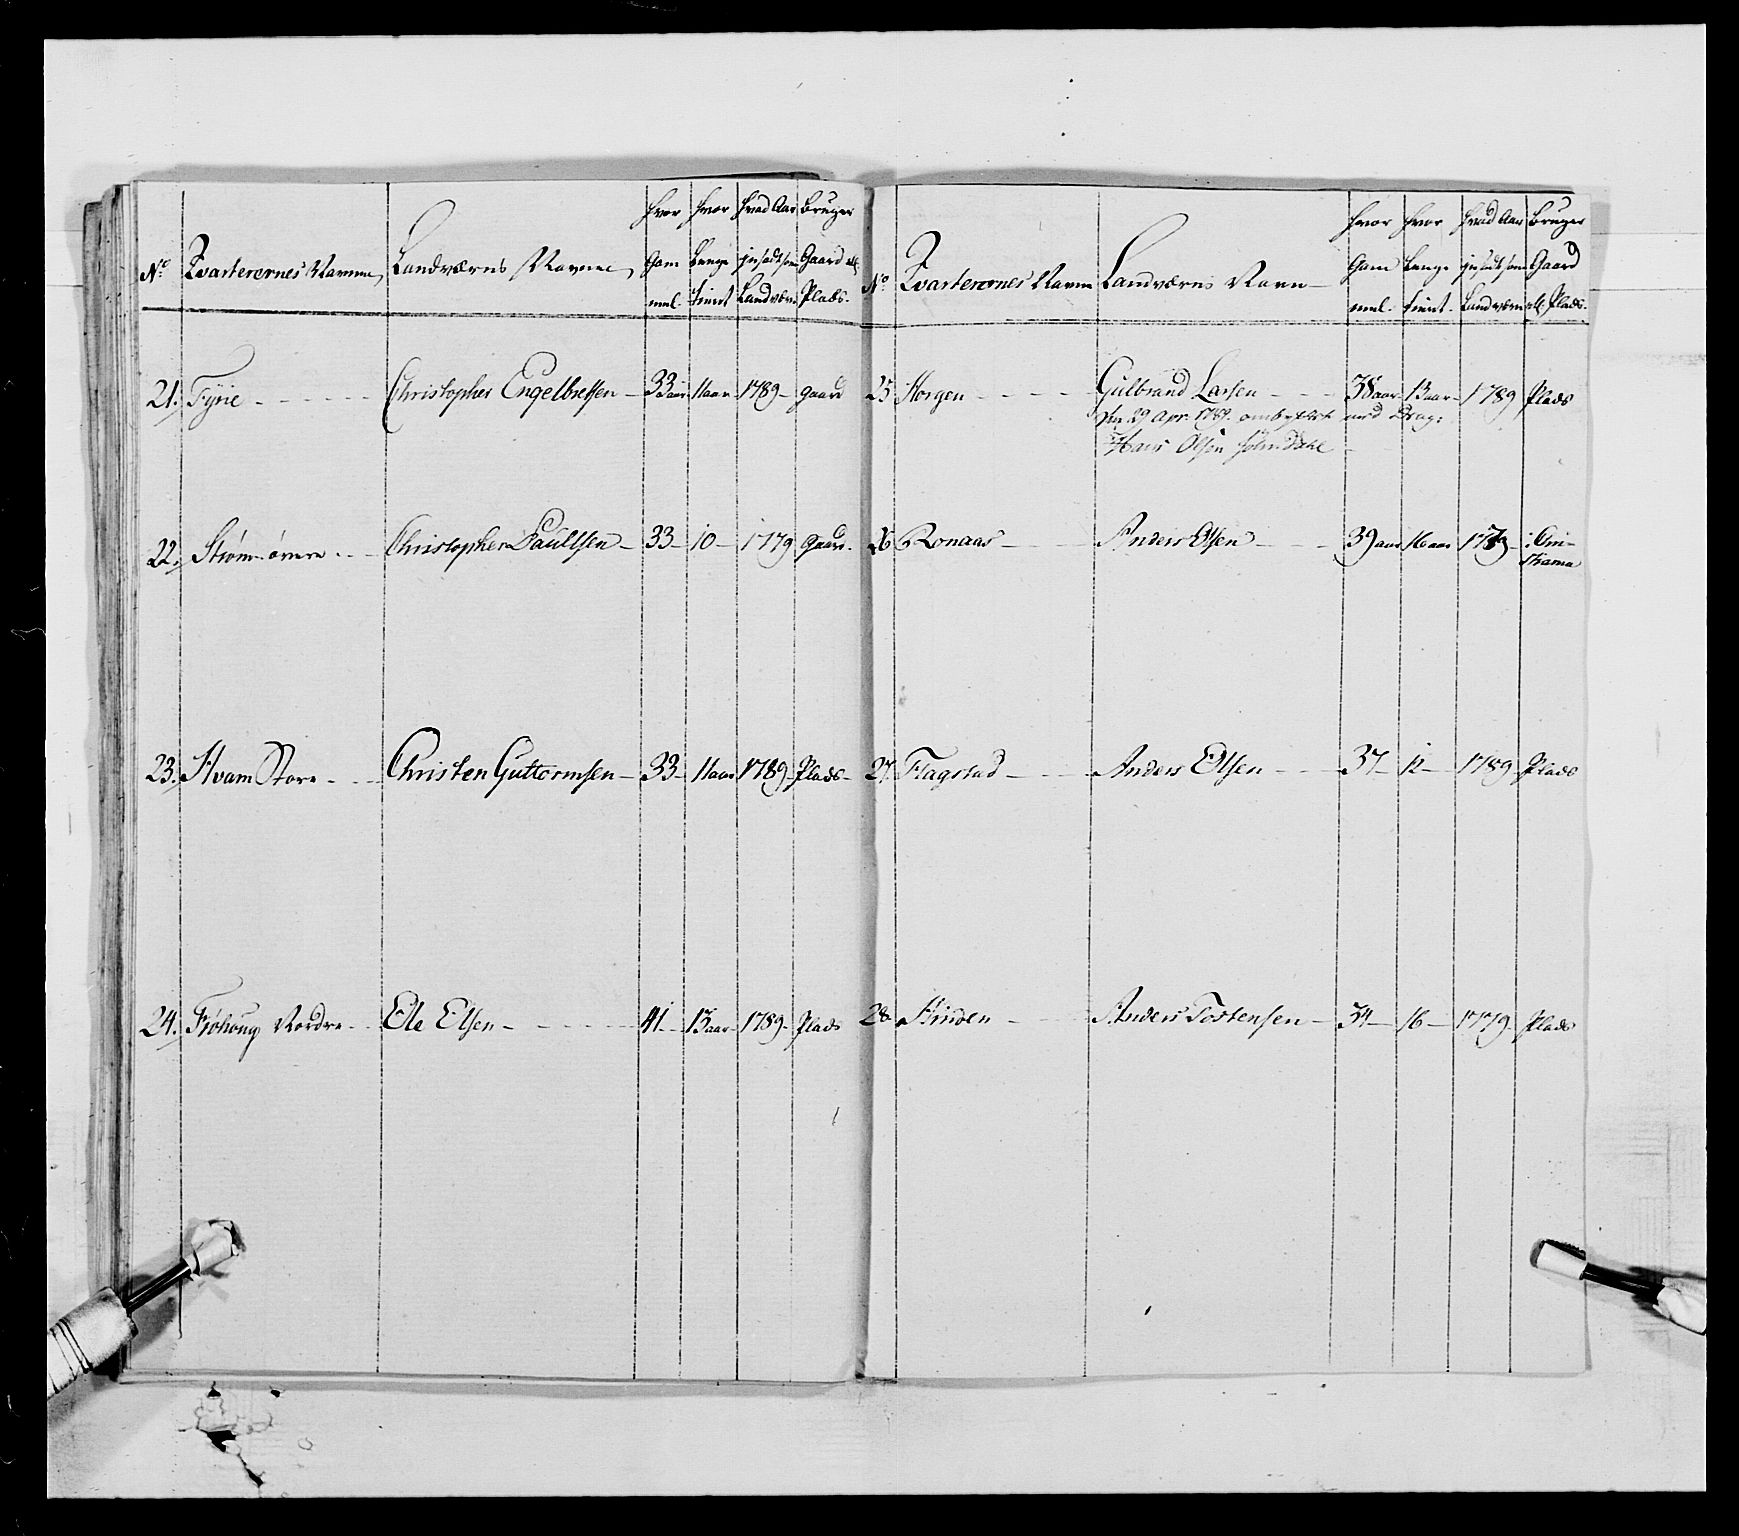 No Qvarterernes Navne Landværns Navne hvor Gammel hvor Længe tient hvad Aar indsadt som Landværn Bruger Gaard ell Plads
21. Fÿrie Christopher Engelbretsen 33 aar 11 aar 1789 gaard
22. Strøm øvere Christopher Paulsen 33 10 1779 gaard
23. Hvam Store Christen Guttormsen 33 11 aar 1789 Plads
24. Frøhoug Nordre Ole Olsen 41 13 aar 1789 Plads
No Qvarterernes Navne Landværns Navn hvor Gammel hvor Længe tient hvad Aar indsadt som Landværn Bruger Gaard ell Plads
25 Horgen Gulbrand Larsen 38 aar 13 aar 1789 Plads
den 29 Apr. 1789. ombyttet med Drag:
Hans Olsen
26 Ronaas Anders Olsen 39 aar 16 aar
27 Flagstad Anders Olsen 37 12 1789 Plads
28 Hinden Anders Tostensen 34 16 1779 Plads